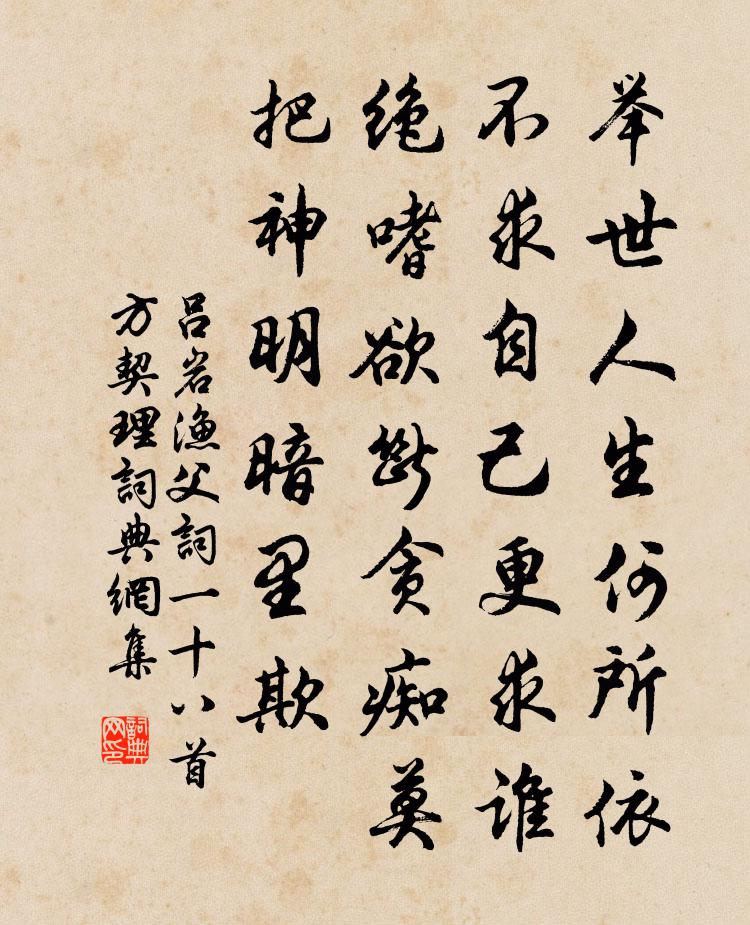 举世人生何所依
不求自己更求谁
绝嗜欲断贪痴莫
把神明暗里欺
吕岩渔父詞一十八首
方契理詞典網集
詞典网印